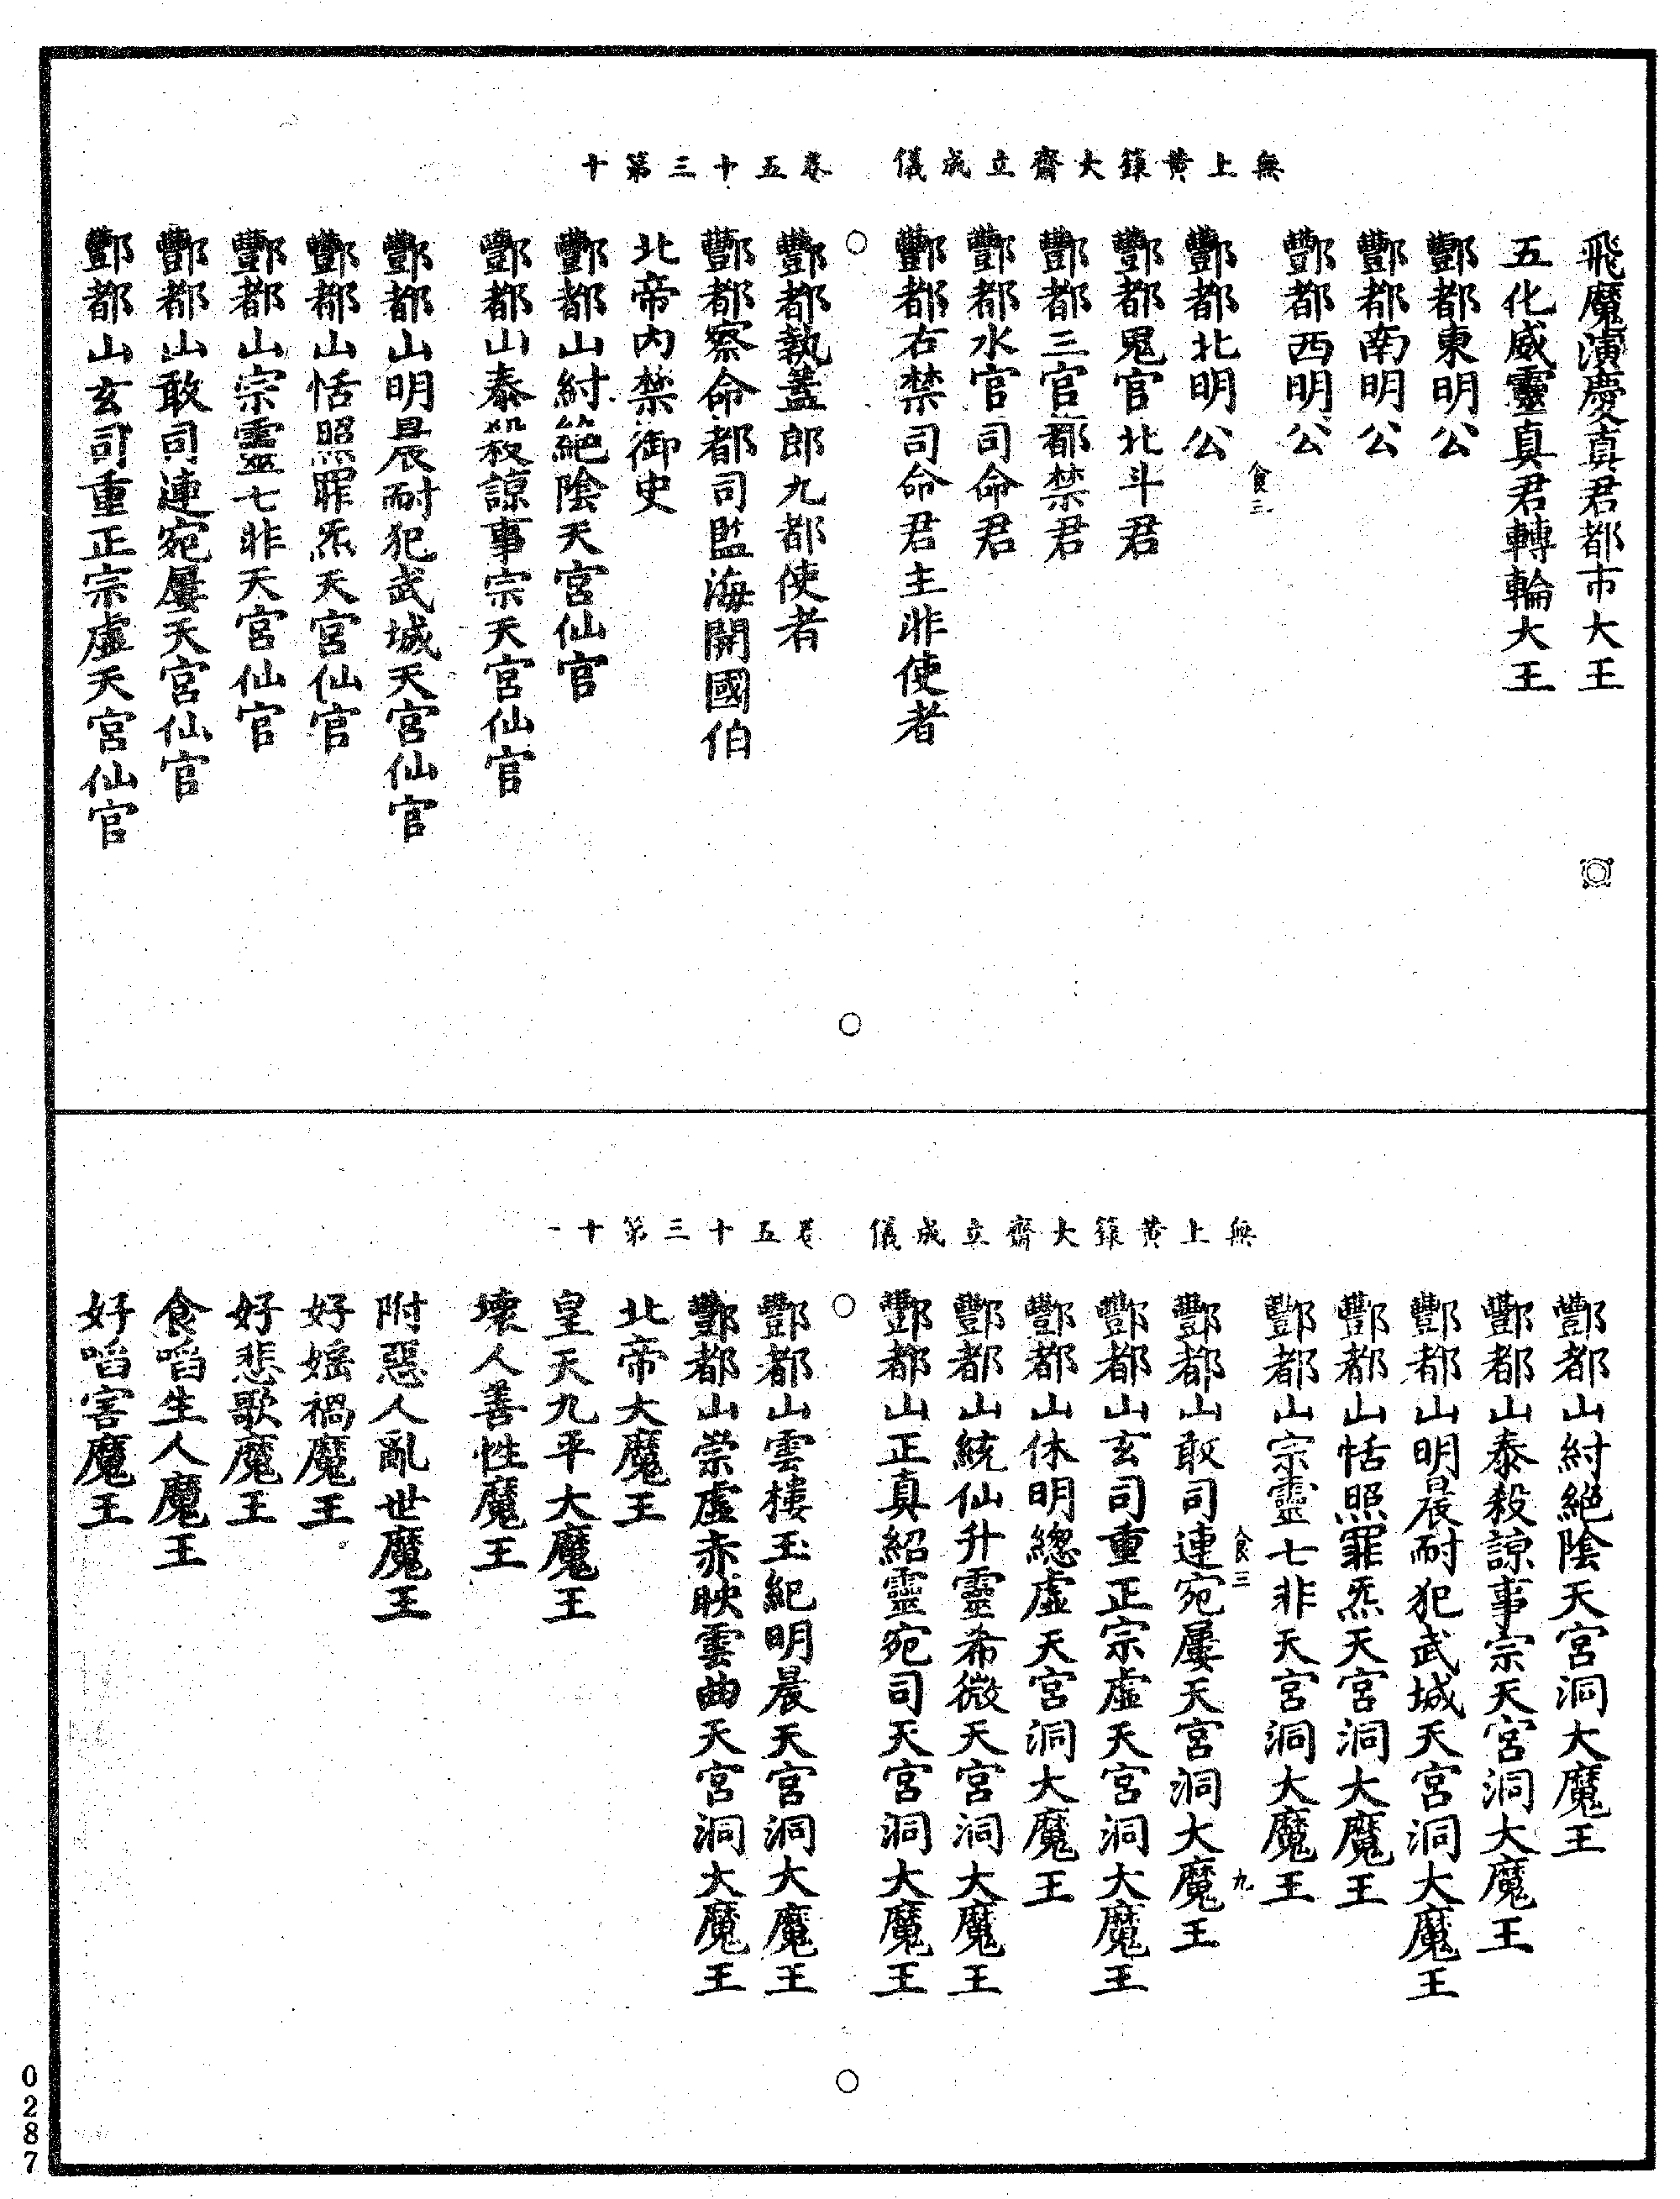 無上黃籙大齋立成儀　卷五十三第十
飛魔演慶真君都市大王
五化威靈真君轉輪大王
酆都東明公
酆都南明公
酆都西明公
食三
酆都北明公
酆都鬼官北斗君
酆都三官都禁君
酆都水官司命君
酆都右禁司命君主非使者
酆都執蓋郎九都使者
酆都察命都司監海開國伯
北帝內禁御史
酆都山紂絕陰天宮仙官
酆都山泰殺諒事宗天宮仙官
酆都山明晨耐犯武城天宮仙官
酆都山恬照罪炁天宮仙官
酆都山宗靈七非天宮仙官
酆都山敢司連宛屢天宮仙官
酆都山玄司重正宗虛天宮仙官
無上黃籙大齋立成儀　卷五十三第十一
酆都山紂絕陰天宮洞大魔王
酆都山泰殺諒事宗天宮洞大魔王
酆都山明晨耐犯武城天宮洞大魔王
酆都山恬照罪炁天宮洞大魔王
酆都山宗靈七非天宮洞大魔王
食三　九
酆都山敢司連宛屢天宮洞大魔王
酆都山玄司重正宗虛天宮洞大魔王
酆都山休明總虛天宮洞大魔王
酆都山統仙升靈希微天宮洞大魔王
酆都山正真紹靈宛司天宮洞大魔王
酆都山雲樓玉紀明晨天宮洞大魔王
酆都山崇虛赤映雲曲天宮洞大魔王
北帝大魔王
皇天九平大魔王
壞人善性魔王
附惡人亂世魔王
好婬禍魔王
好悲歌魔王
食啗生人魔王
好啗害魔王
0287